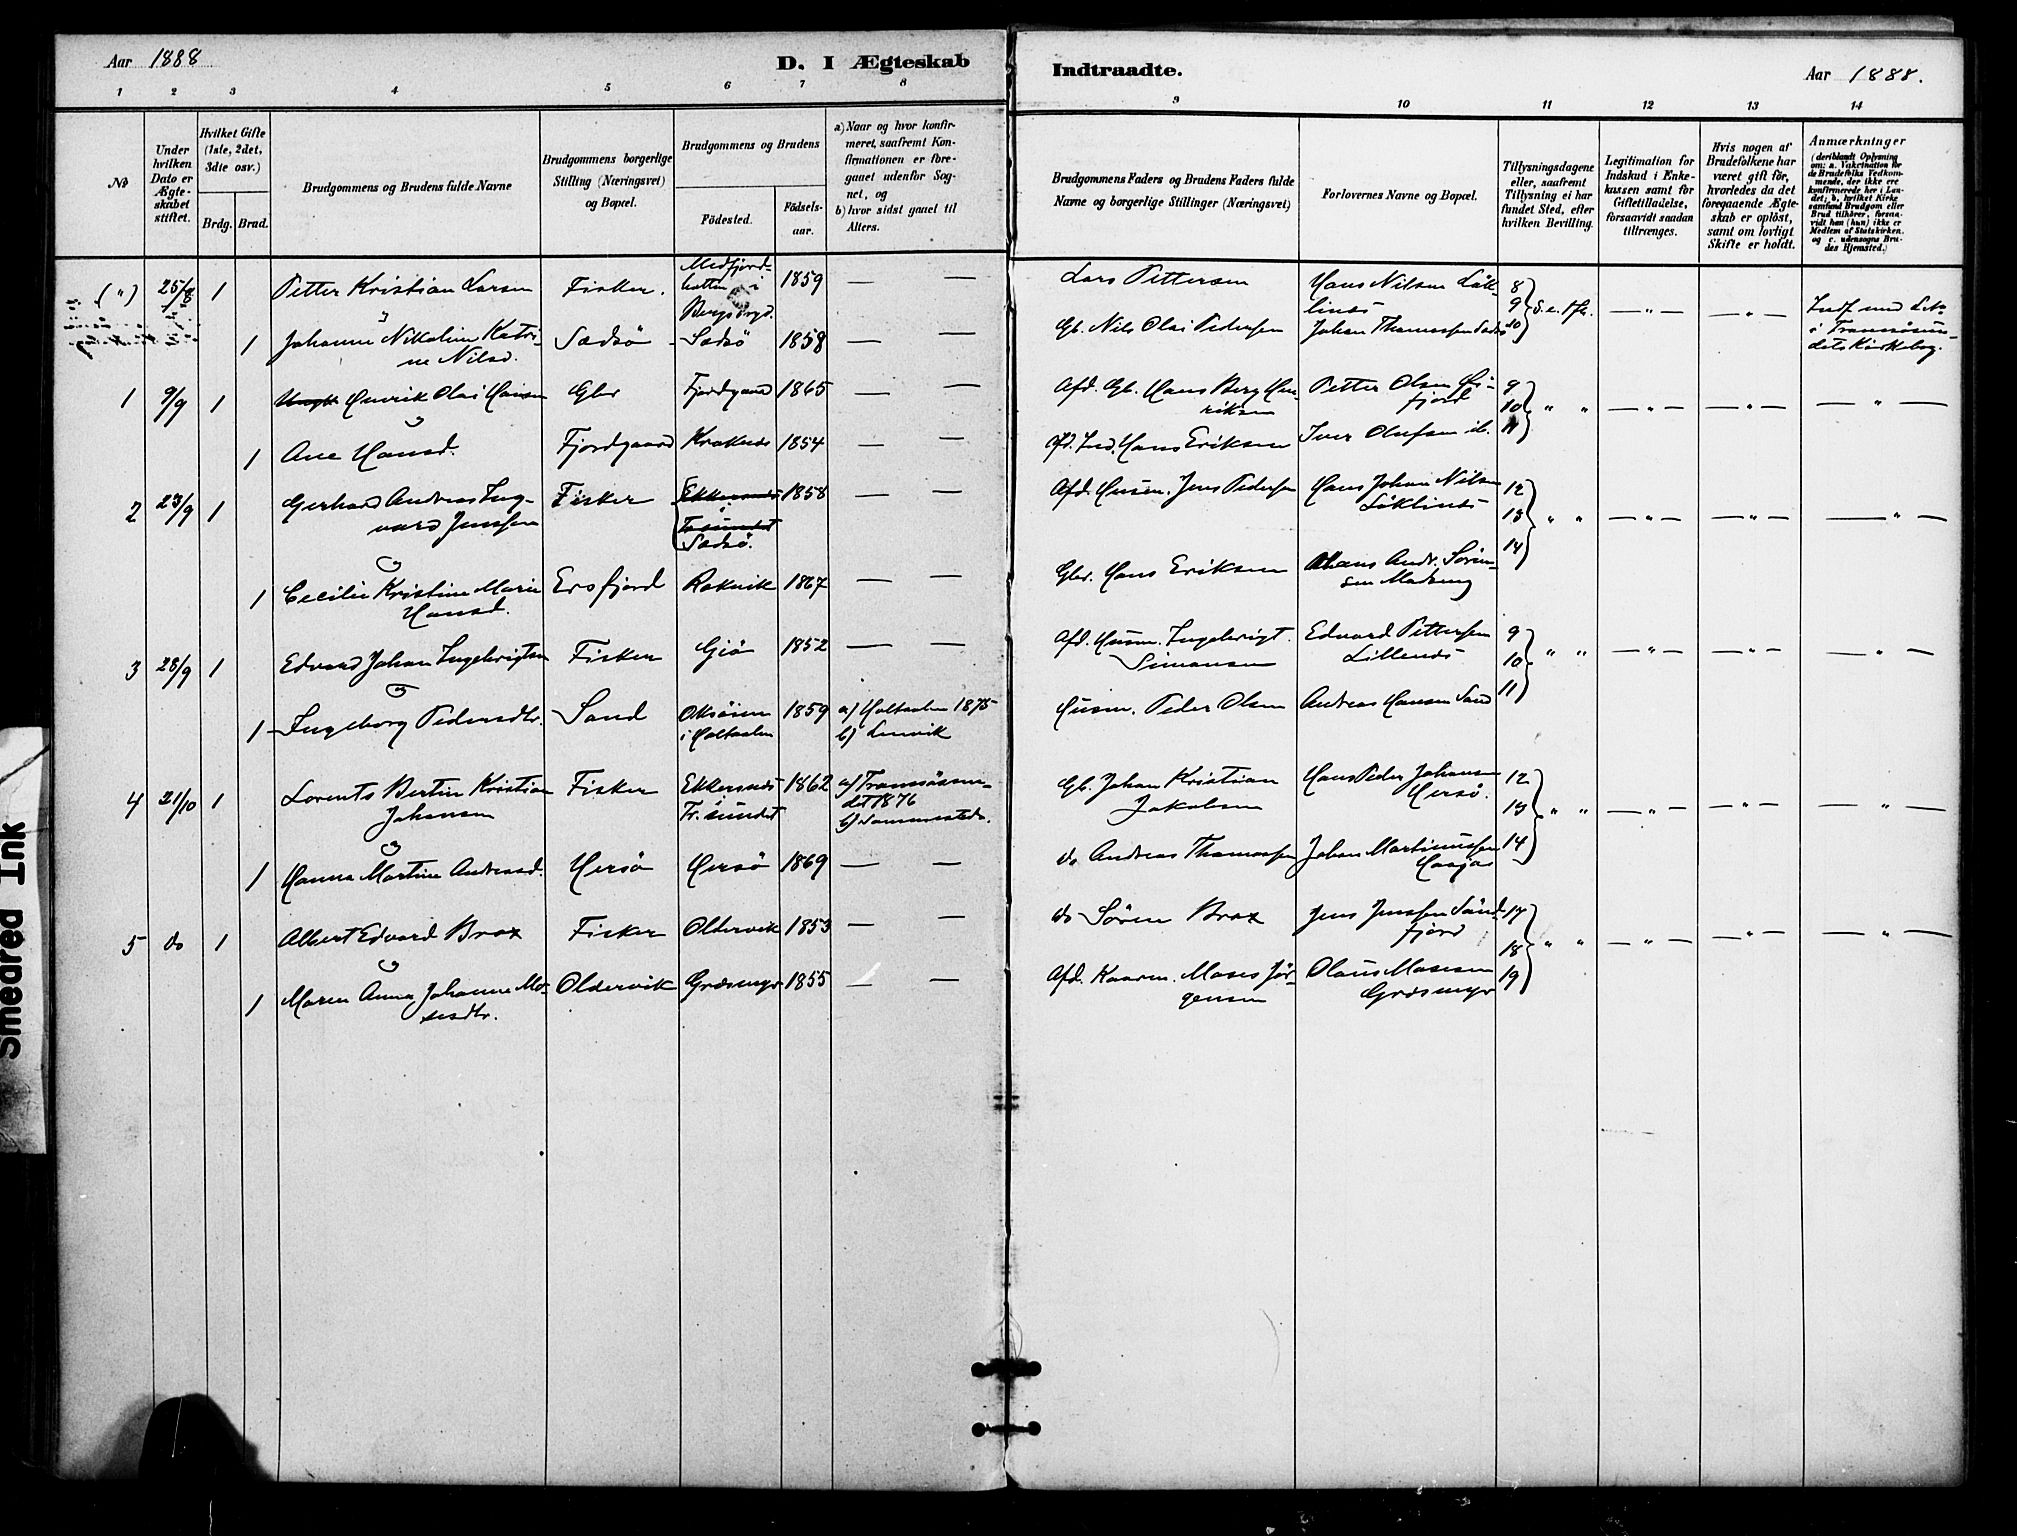 Aar 1888
D. I Ægteskab
Indtraadte.
Aar 1888.
1 2 3 4 5 6 7 8 9 10 11 12 13 14
No
Under hvilken Dato er Ægteskabet stiftet.
Hvilket Gifte (1ste, 2det, 3die osv.)
Brdg. Brud.
Brudgommens og Brudens fulde Navne
Brudgommens borgerlige Stilling (Næringsvei) og Bopæl.
Brudgommens og Brudens
Födested.
Födselsaar.
a) Naar og hvor konfirmeret, saafremt Konfirmationen er foregaaet udenfor Sognet, og
b) hvor sidst gaaet til Alters.
Brudgommens Faders og Brudens Faders fulde Navne og borgerlige Stillinger (Næringsvei)
Forlovernes Navne og Bopæl.
Tillysningsdagene eller, saafremt Tillysning ei har fundet Sted, efter hvilken Bevilling.
Legitimation for Indskud i Enkekassen samt for Giftetilladelse, forsaavidt saadan tiltrænges.
Hvis nogen af Brudefolkene har været gift för, hvorledes da det foregaaende Ægteskab er oplöst, samt om lovligt Skifte er holdt.
Anmærkninger
(deriblandt Oplysning om: a. Vakcination for de Brudefolks Vedkommende, der ikke ere konfirmerede her i Landet; b, hvilket Kirkesamfund Brudgom eller Brud tilhörer, forsaavidt han (hun) ikke er Medlem af Statskirken. og c. udensogns Brudes Hjemsted.)
(") 25/8 1 Petter Kristian Larsen Fisker. Medfjordbotten i Bergs Prgd. 1859 — — Lars Pettersen Hans Nilsen Löklinds 8 9 10
1 Johanne Nikoline Katrine Nilsd. Sædsö Sædsö 1858 — Gb. Nils Olai Pedersen Johan Thomassen Sædsö
1 9/9 1 Henrik Olai Hansen Gbr Fjordgaard 1865 — — Afd. Gb. Hans Berg Henriksen Petter Olsen 9 10 11 " " — " — — " — — " —
1 Ane Hansd. Fjordgaard Kraknes 1854 — — Afd. Ind. Hans Eriksen Iver Olufsen ib.
2 23/9 1 Gerhard Andreas Ingvard Jenssen Fisker Ekkernes Trsundet Sædsö. 1858 — — Afd. Husm. Jens Pedersen Hans Johan Nilsen Löklinds 12 13 14 " " — " — — " — — " —
1 Cecilie Kristine Marie Hansd. Ersfjord Rakvik 1867 — — Gbr. Hans Eriksen Hans Andr. Sörensen Madseng
3 28/9 1 Edvard Johan Ingebrigtsen Fisker Gjö 1852 — — Afd. Husm. Ingebrigt Simonsen Edvard Pettersen Lillenes 9 10 11 " " — " — — " — — " —
1 Ingeborg Pedersdtr. Sand Oksören i Holtaalen 1859 a) Holtaalen 1875 b) Lenvik Husm. Peder Olsen Andreas Hansen Sand
4 21/10 1 Lorents Bertin Kristian Johansen Fisker Ekkernes Tr.sundet 1862 a) Tromsösundet 1876 b) sammesteds. Gb. Johan Kristian Jakobsen Hans Peder Johansen Hersö. 12 13 14 " " — " — — " — — " —
1 Hanna Martine Andreasd. Hersö Hersö 1869 — — do Andreas Thomassen Johan Martinussen Haajas
5 do 1 Albert Edvard Brox Fisker Oldervik 1853 — — do Sören Brox Jens Jenssen Sandfjord 17 18 19 " " — " — — " — — " —
1 Maren Anna Johanne Mosesdtr. Oldervik Græsmyr 1855 — — Afd. Kaarm. Moses Jörgensen Olaus Mosesen Græsmyr
Smeared Ink